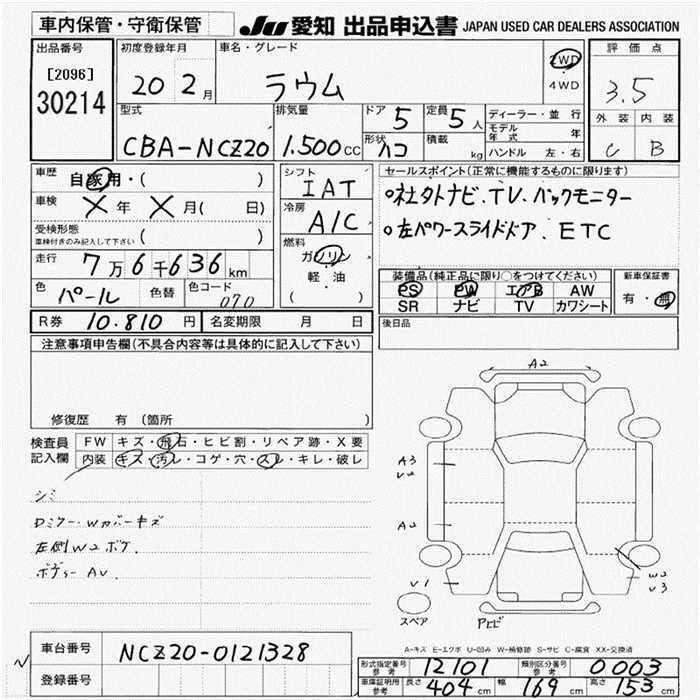 車内保管・守衛保管
JU 愛知 出品申込書 JAPAN USED CAR DEALERS ASSOCIATION
出品番号
[2096]
30214
初度登録年月
20 2月
車名・グレード
ラウム
2WD
・
4WD
評価点
3.5
外装 内装
C B
型式
CBA-NCZ20
排気量
1.500cc
ドア 5
形状 ハコ
定員 5人
積載 kg
ディーラー・並行
モデル年式 年
ハンドル 左・右
車歴 自家用・( )
車検 X年 X月( 日)
受検形態
車検付きのみ記入して下さい ( )
走行 7万6千636km
色 パール 色替 色コード 070
シフト IAT
冷房 A/C
燃料
ガソリン
・
軽・油
( )
セールスポイント(正常に機能するものに限ります)
○社外ナビ.TV.バックモニター
○左パワースライドドア. ETC
装備品(純正品に限り○をつけてください)
PS PW エアB AW
SR ナビ TV カワシート
新車保証書
有・無
R券 10.810円 名変期限 月 日
後日品
注意事項申告欄(不具合内容等は具体的に記入して下さい)
修復歴 有(箇所 )
検査員
記入欄
FW キズ・飛石・ヒビ割・リペア跡・X要
内装 キズ・汚レ・コゲ・穴・スレ・キレ・破レ
シミ
Dミラー.Wカバーキズ
左側W2ボケ.
ボディーAU.
A2
A3
U2
A2
U1
W2
U3
スペア
アヒビ
A-キズ E-エクボ U-凹み W-補修跡 S-サビ C-腐食 XX-交換済
車台番号 NCZ20-0121328
登録番号
形式指定番号
参考
12101
類別区分番号
参考
0003
車庫証明用
参考
長さ 404cm 幅 169cm 高さ 153cm